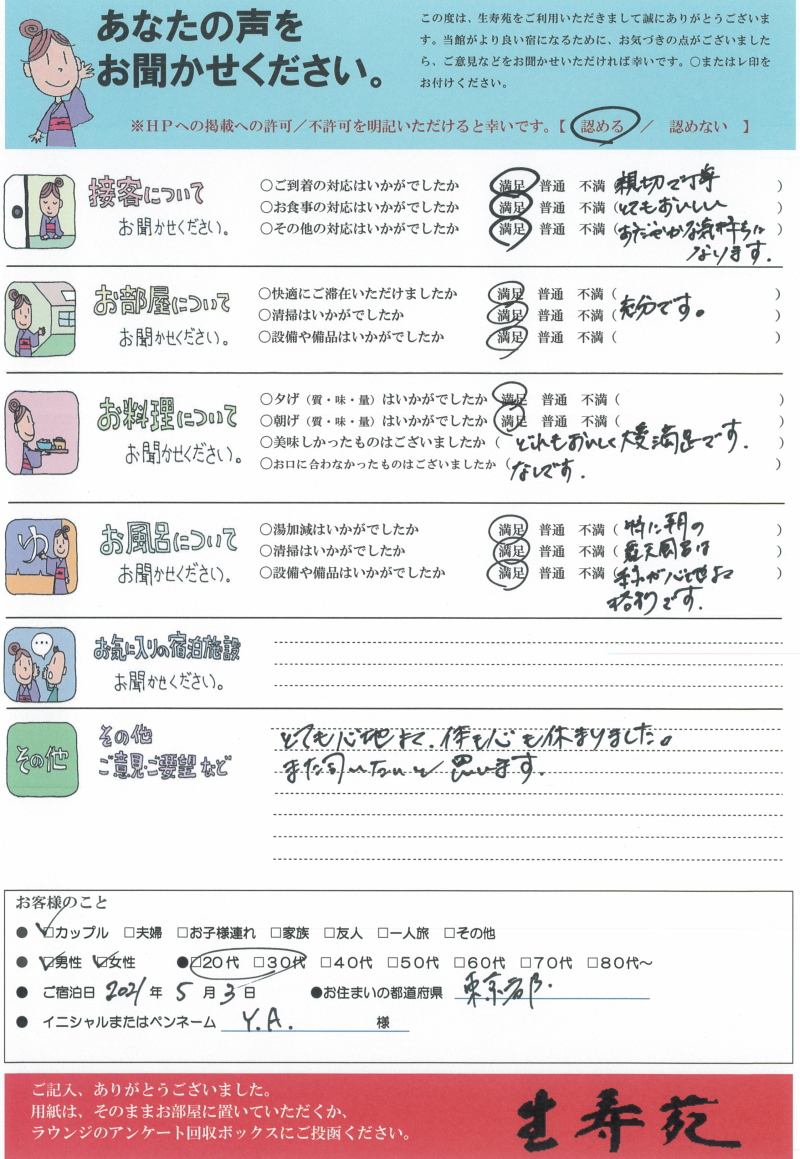 あなたの声を
お聞かせください。
この度は、生寿苑をご利用いただきまして誠にありがとうございま
す。当館がより良い宿になるために、お気づきの点がございました
ら、ご意見などをお聞かせいただければ幸いです。○またはレ印を
お付けください。
※HPへの掲載への許可／不許可を明記いただけると幸いです。【 認める ／ 認めない 】
接客について
お聞かせください。
○ご到着の対応はいかがでしたか 満足 普通 不満 ( 親切で丁寧 )
○お食事の対応はいかがでしたか 満足 普通 不満 ( とてもおいしい )
○その他の対応はいかがでしたか 満足 普通 不満 ( おだやかな気持ちに )
なります。
お部屋について
お聞かせください。
○快適にご滞在いただけましたか 満足 普通 不満 ( )
○清掃はいかがでしたか 満足 普通 不満 ( 充分です。 )
○設備や備品はいかがでしたか 満足 普通 不満 ( )
お料理について
お聞かせください。
○夕げ（質・味・量）はいかがでしたか 満足 普通 不満 ( )
○朝げ（質・味・量）はいかがでしたか 満足 普通 不満 ( )
○美味しかったものはございましたか ( どれもおいしく大変満足です. )
○お口に合わなかったものはございましたか ( なしです. )
お風呂について
お聞かせください。
○湯加減はいかがでしたか 満足 普通 不満 ( 特に朝の )
○清掃はいかがでしたか 満足 普通 不満 ( 露天風呂は )
○設備や備品はいかがでしたか 満足 普通 不満 ( が心地よく )
格別です.
お気に入りの宿泊施設
お聞かせください。
ゆ
その他
その他
ご意見・ご要望など
とても心地よく、体も心も休まりました。
また伺いたいと思います.
お客様のこと
● □カップル □夫婦 □お子様連れ □家族 □友人 □一人旅 □その他
● □男性 □女性 ●□20代 □30代 □40代 □50代 □60代 □70代 □80代～
● ご宿泊日 2021 年 5 月 3 日 ●お住まいの都道府県 東京都.
● イニシャルまたはペンネーム Y.A. 様
ご記入、ありがとうございました。
用紙は、そのままお部屋に置いていただくか、
ラウンジのアンケート回収ボックスにご投函ください。
生寿苑